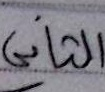 الثاني